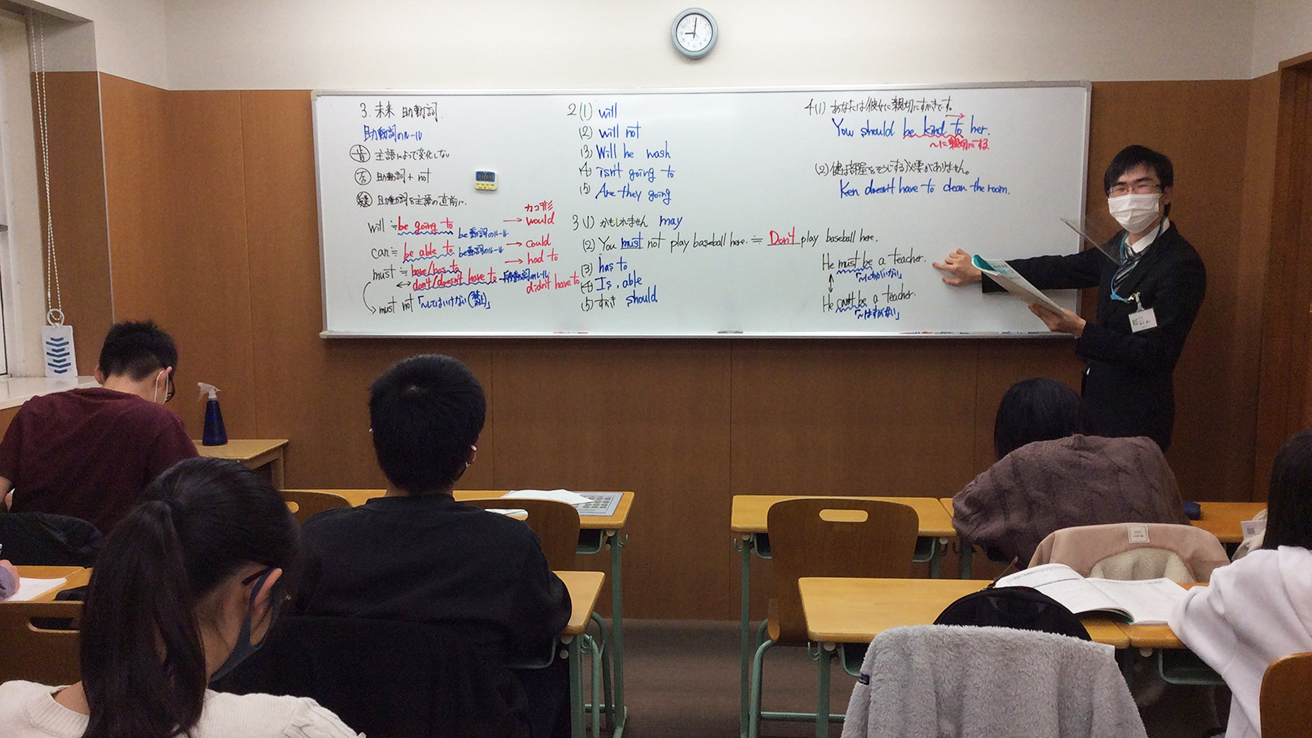 3. 未来 助動詞
助動詞のルール
肯 主語によって変化しない
否 助動詞 + not
疑 助動詞を主語の直前に.
カコ形
will ≒ be going to → would
be動詞のルール
can ≒ be able to → could
be動詞のルール
must ≒ have/has to → had to
↔ don't/doesn't have to
didn't have to
→ must not 「〜してはいけない(禁止)」
2 (1) will
(2) will not
(3) Will he wash
(4) isn't going to
(5) Are they going
3 (1) かもしれません may
(2) You must not play baseball here. = Don't play baseball here.
(3) has to
(4) Is, able
(5) すべき should
4 (1) あなたは彼女に親切にすべきです。
You should be kind to her.
〜に親切にする
(2) 健は部屋をそうじする必要がありません。
Ken doesn't have to clean the room.
He must be a teacher.
「〜にちがいない」
He can't be a teacher.
「〜はずがない」